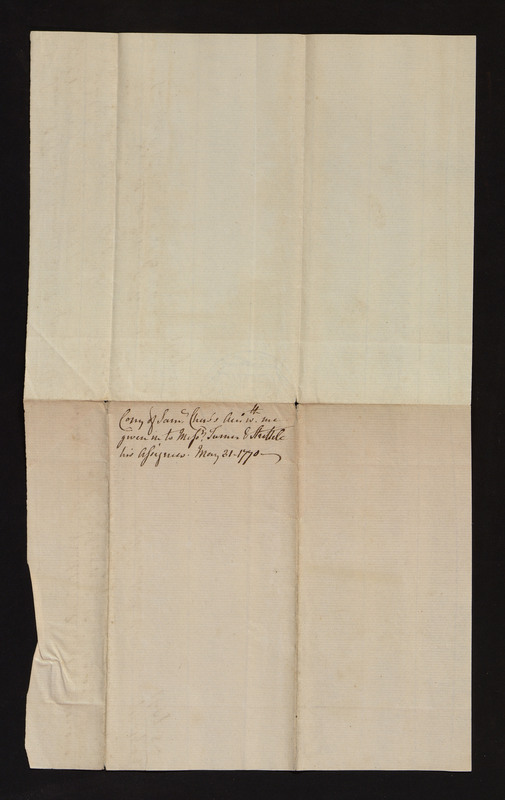 Copy of Sam.l Chubbs Acc.t w.th me
given in to Mess.rs Turner &
his Assignees. May 31. 1770